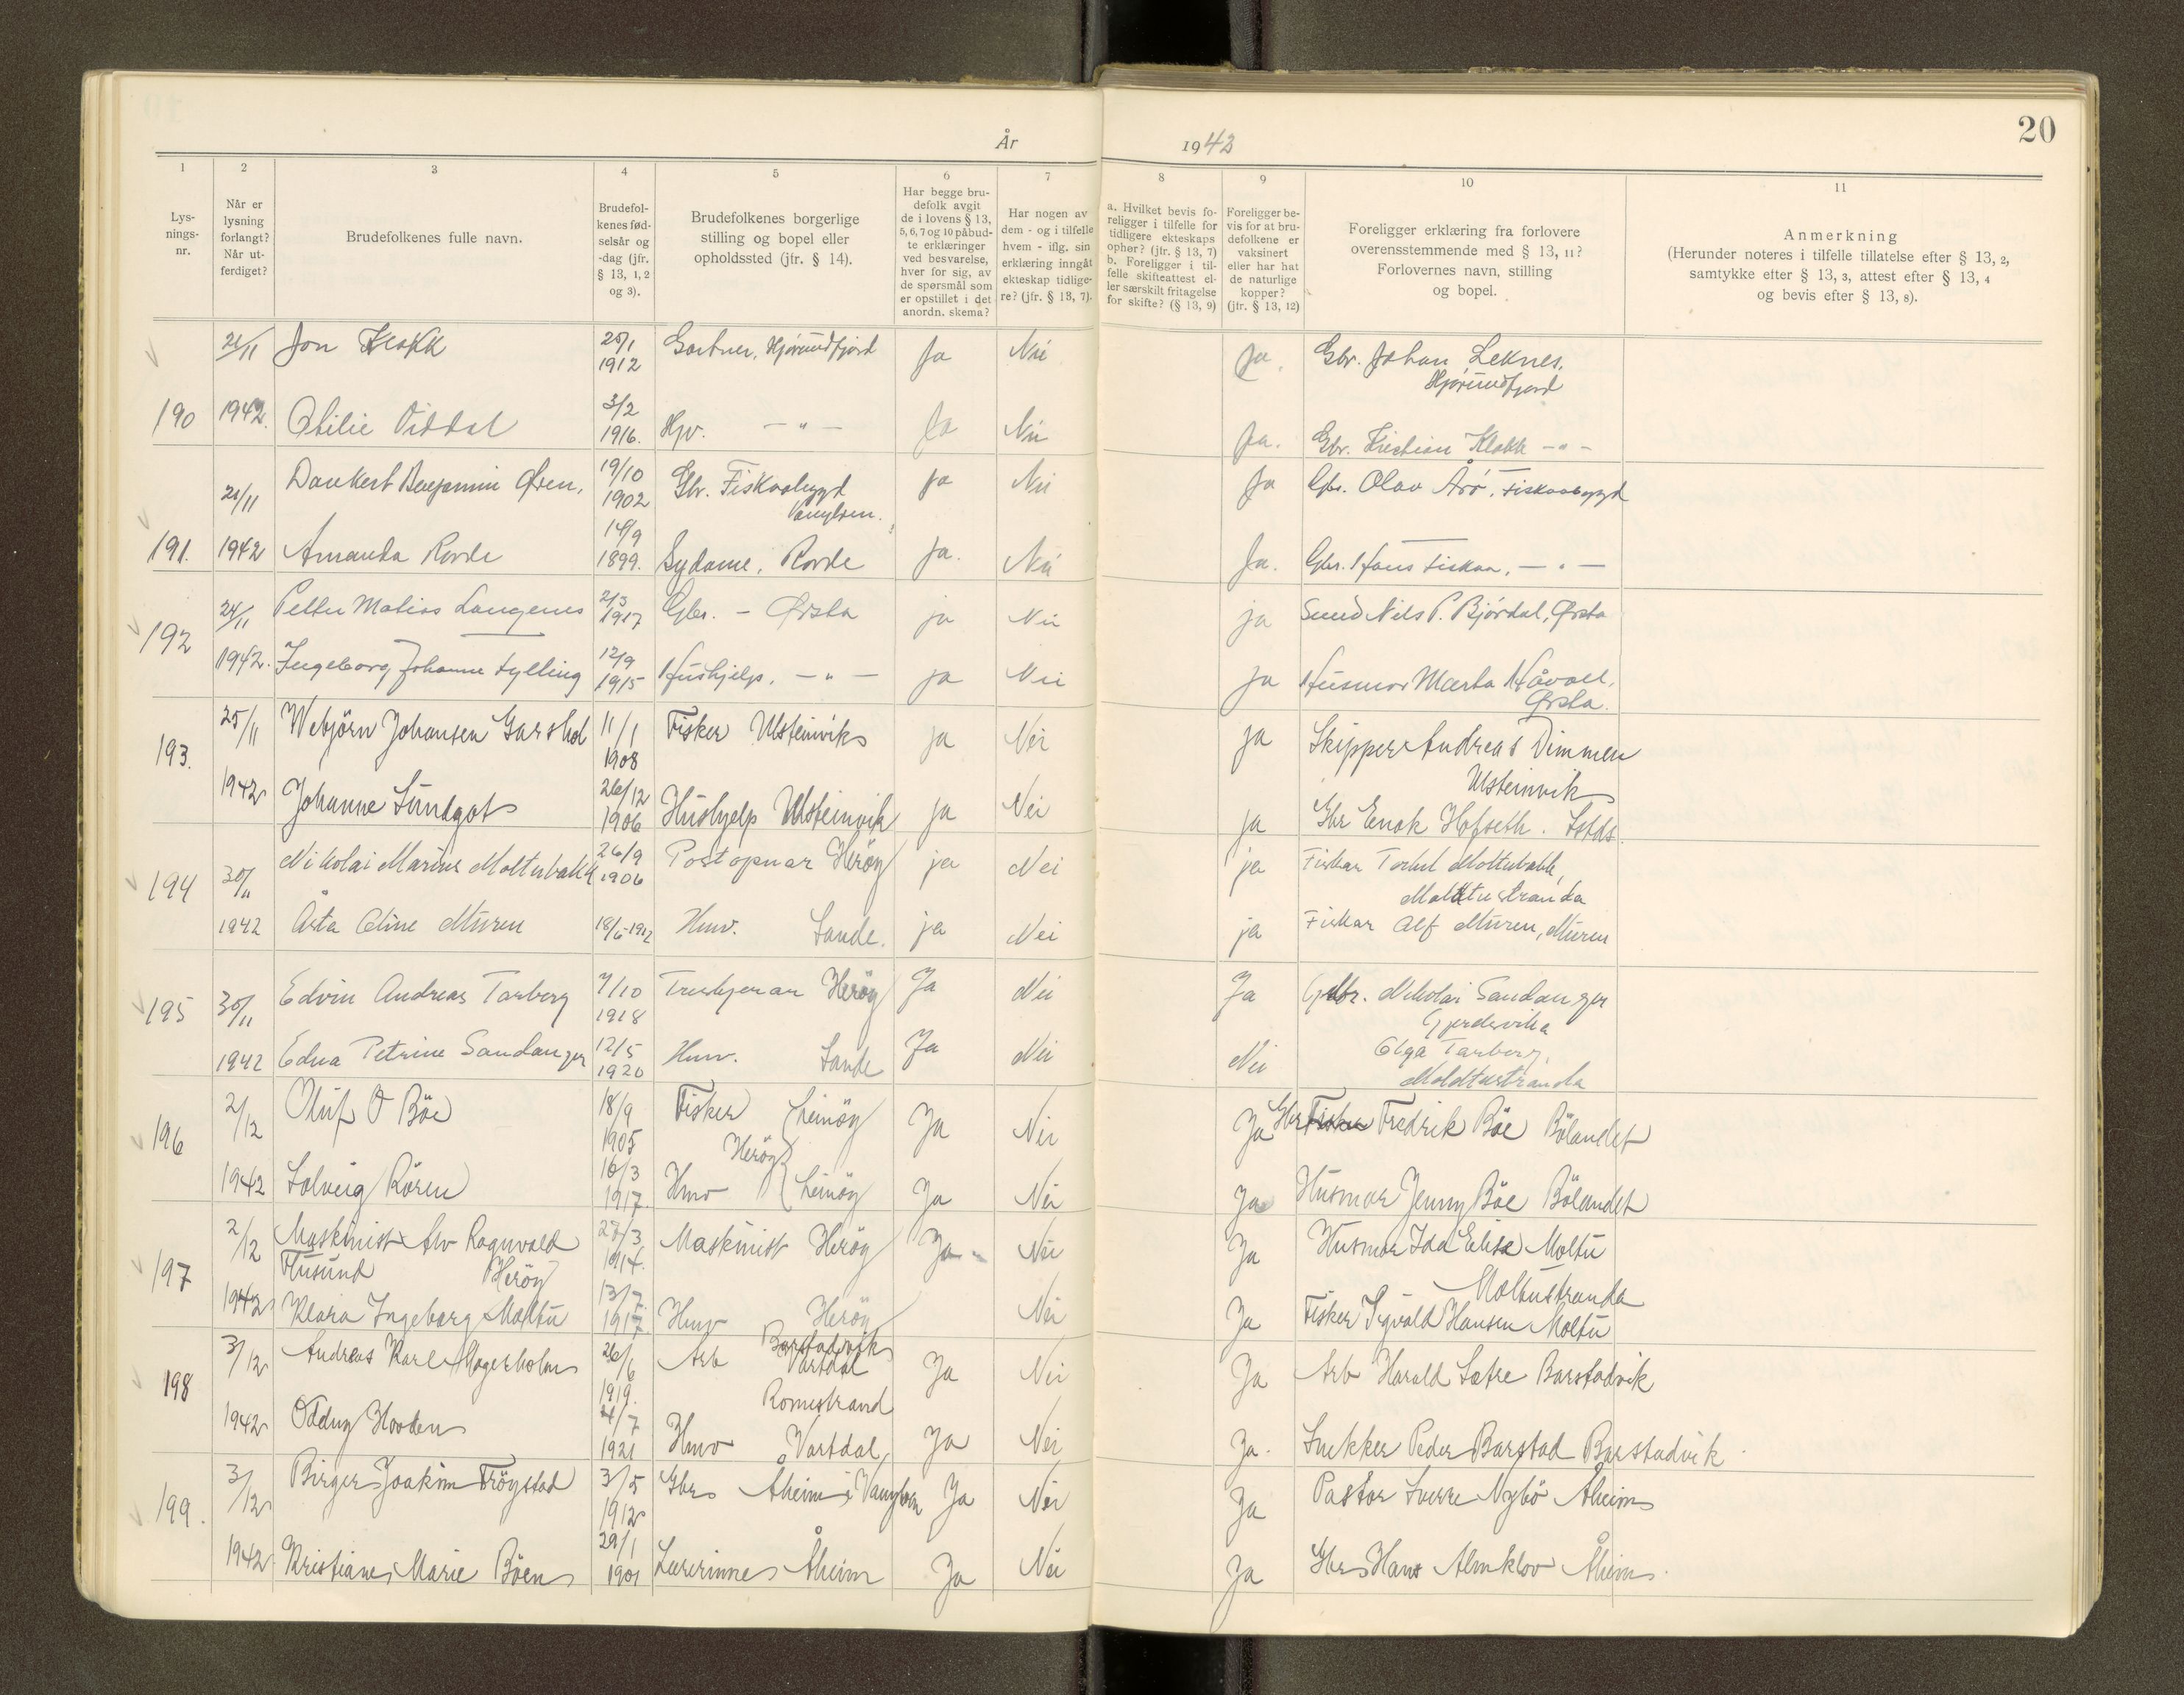 20
År 1942
1 2 3 4 5 6 7 8 9 10 11
Lys-
nings-
nr.
Når er
lysning
forlangt?
Når ut-
ferdiget?
Brudefolkenes fulle navn.
Brudefol-
kenes fød-
selsår og
-dag (jfr.
§ 13, 1, 2
og 3).
Brudefolkenes borgerlige
stilling og bopel eller
opholdssted (jfr. § 14).
Har begge bru-
defolk avgit
de i lovens § 13,
5, 6, 7 og 10 påbud-
te erklæringer
ved besvarelse,
hver for sig, av
de spørsmål som
er opstillet i det
anordn. skema?
Har nogen av
dem - og i tilfelle
hvem - iflg. sin
erklæring inngåt
ekteskap tidlige-
re? (jfr. § 13, 7).
a. Hvilket bevis fo-
religger i tilfelle for
tidligere ekteskaps
ophør? (jfr. § 13, 7)
b. Foreligger i til-
felle skifteattest el-
ler særskilt fritagelse
for skifte? (§ 13, 9)
Foreligger be-
vis for at bru-
defolkene er
vaksinert
eller har hat
de naturlige
kopper?
(jfr. § 13, 12)
Foreligger erklæring fra forlovere
overensstemmende med § 13, 11?
Forlovernes navn, stilling
og bopel.
Anmerkning
(Herunder noteres i tilfelle tillatelse efter § 13, 2,
samtykke efter § 13, 3, attest efter § 13, 4
og bevis efter § 13, 8).
21/11 Jon Klokk 25/1 1912 Gartner, Hjørundfjord Ja Nei Ja. Gbr. Johan Leknes, Hjørundfjord
190 1942. Otilie Viddal 3/2 1916. Hpv. - " - Ja Nei Ja. Gbr. Kristian Klokk - " -
21/11 Dankert Benjamin Øren, 19/10 1902 Gbr. Fiskaabygd Vanylven. ja Nei Ja Gbr. Olav Årö, Fiskaabygd
191. 1942 Amanda Rovde 14/9 1899. Sydame, Rovde ja. Nei Ja. Gbr. Hans Fiskaa, - " -
192 24/11 Petter Matias Langenes 2/3 1917 Gbr. - Ørsta ja Nei ja Smed Nils P. Bjørdal, Ørsta
1942. Ingeborg Johanne Sylling 12/9 1915 Hushjelp. - " - ja Nei ja Husmor Marta Håvoll, Ørsta.
193. 25/11 Webjörn Johansen Garshol 11/1 1908 Fisker Ulsteinvik ja Nei ja Skipper Andreas Dimmen Ulsteinvik
1942 Johanne Sundgot 26/12 1906 Hushjelp Ulsteinvik ja Nei ja Gbr Enok Hofseth. Sstds.
194 30/11 Nikolai Marius Moltubakk 26/9 1906 Postopnar Heröy ja Nei ja Fiskar Torlul Moltubakk, Moltustranda
1942 Åsta Oline Muren 18/6-1912 Hmv. Sande. ja Nei ja Fiskar Alf Muren, Muren
195 30/11 Edvin Andreas Tarberg 7/10 1918 Heröy Ja Nei Ja Gbr. Nikolai Sandanger Gjerdsvika
1942 Edna Petrine Sandanger 12/5 1920 Hmv. Sande Ja Nei Nei Olga Tarberg, Moldtustranda
196 2/12 Oluf O Böe 18/9 1905 Fisker Leinöy Heröy Ja Nei Ja Gbr Fisker Fredrik Böe Bölandet
1942 Solveig Rören 16/3 1917. Hmv Leinöy Ja Nei Ja Husmor Jenny Böe Bölandet
197 2/12 Maskinist Alv Ragnvald Husund Heröy 27/3 1914. Maskinist Heröy Ja " Nei Ja Husmor Ida Elise Moltu Moltustranda
1942 Klara Ingeborg Moltu 13/7 1917. Hmv Heröy Nei Ja Fisker Sigvald Hansen Moltu
198 3/12 Andreas Karl Hagerholm 26/6 1919. Arb Barstadvik Vartdal Ja Nei Ja Arb Harald Sætre Barstadvik
1942 Oddny Hovden 4/7 1921 Hmv Romestrand Vartdal Ja Nei Ja. Snekker Peder Barstad Barstadvik
199. 3/12 Birger Joakim Fröystad 3/5 1912 Gbr Åheim i Vanylven Ja Nei Ja Pastor Sverre Nybö Åheim
1942 Kristiane Marie Böen 29/1 1901 Lærerinne Åheim Ja Nei Ja Gbr Hans Almklov Åheim.